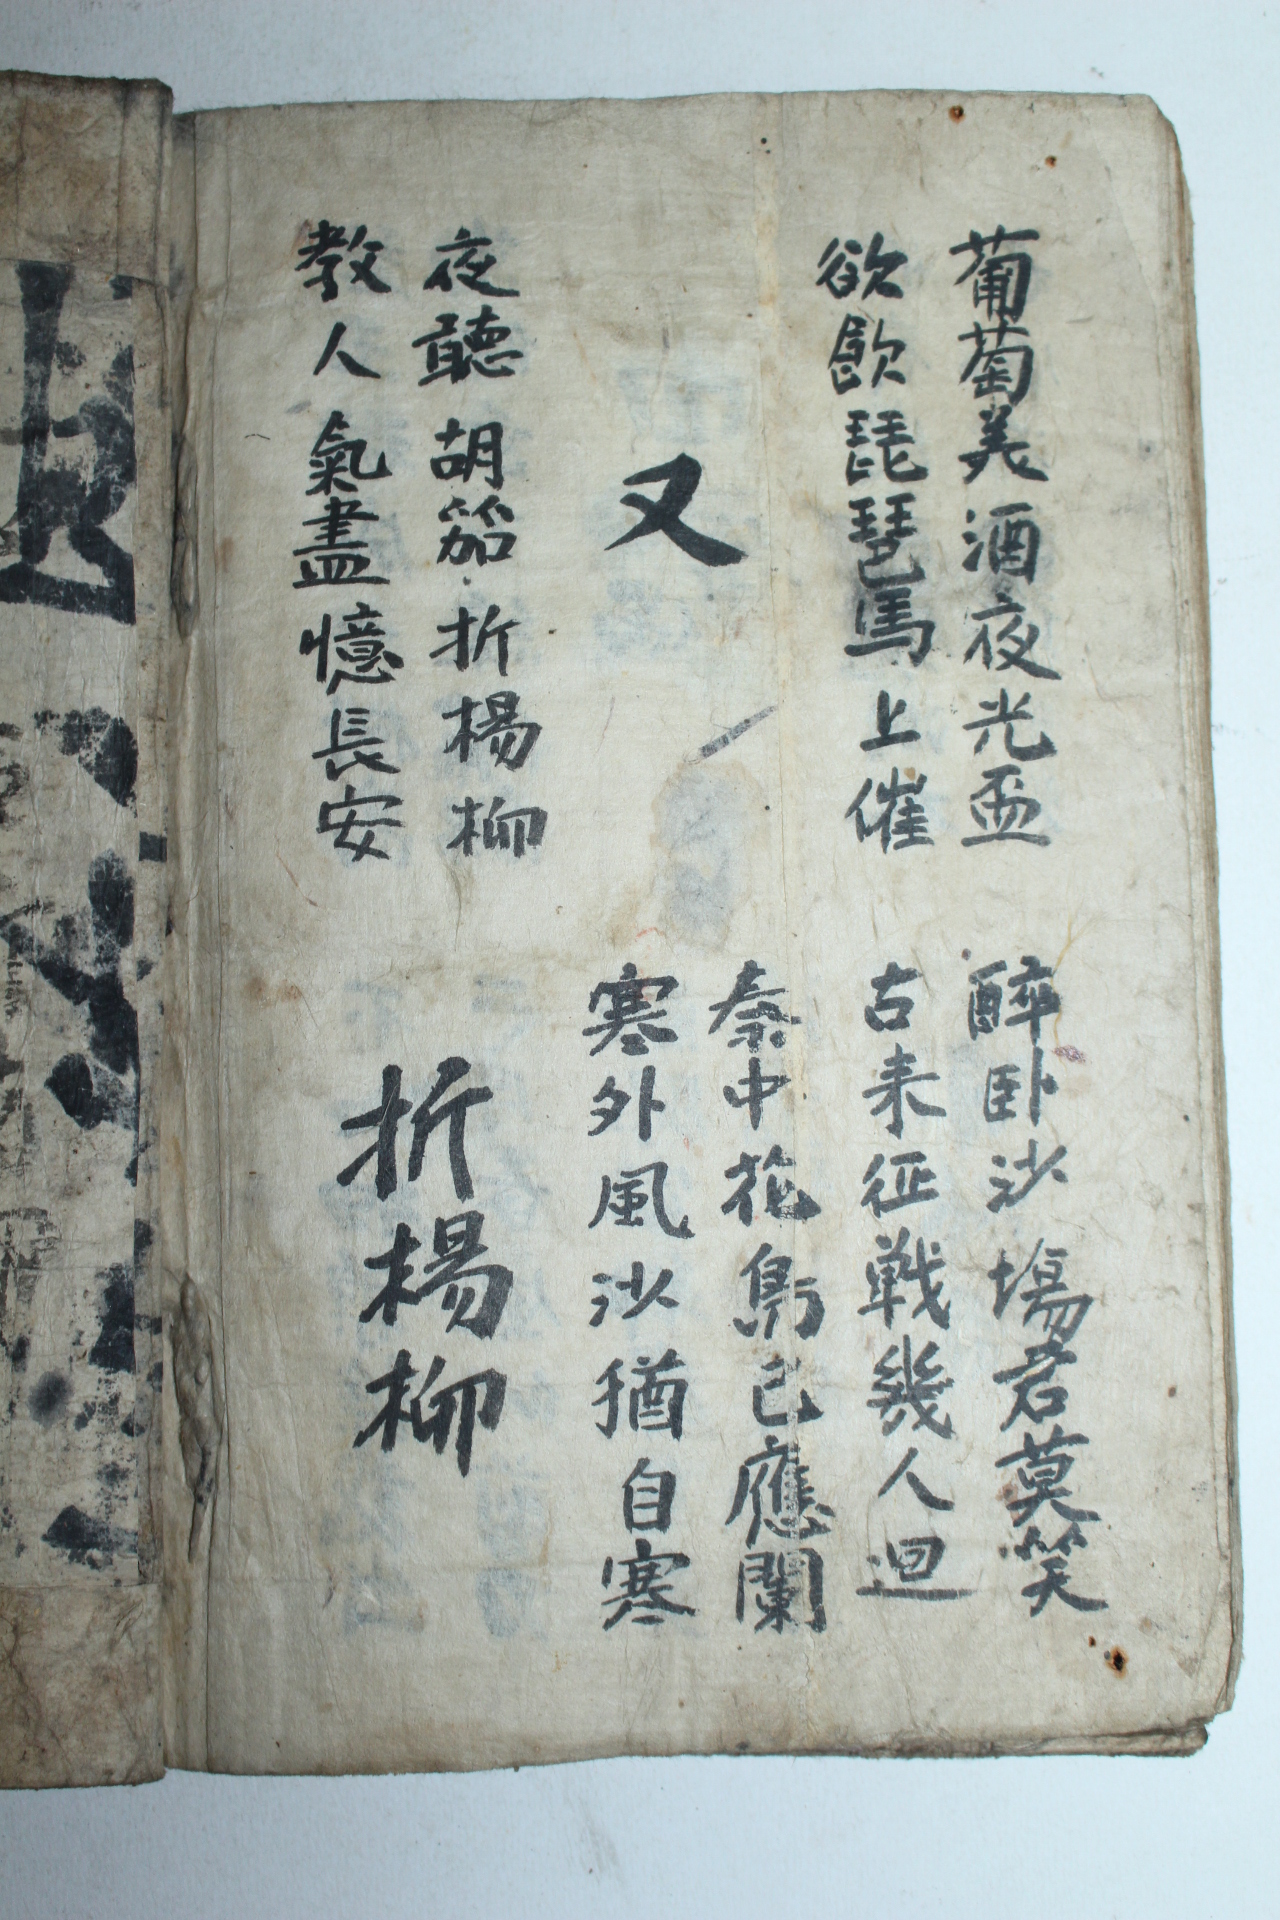 葡萄美酒夜光盃
欲飲琵琶馬上催
醉卧沙塲君莫笑
古来征戦幾人迴
又
秦中花鳥已應闌
寒外風沙猶自寒
夜聽胡笳折楊柳
教人氣盡憶長安
折楊柳